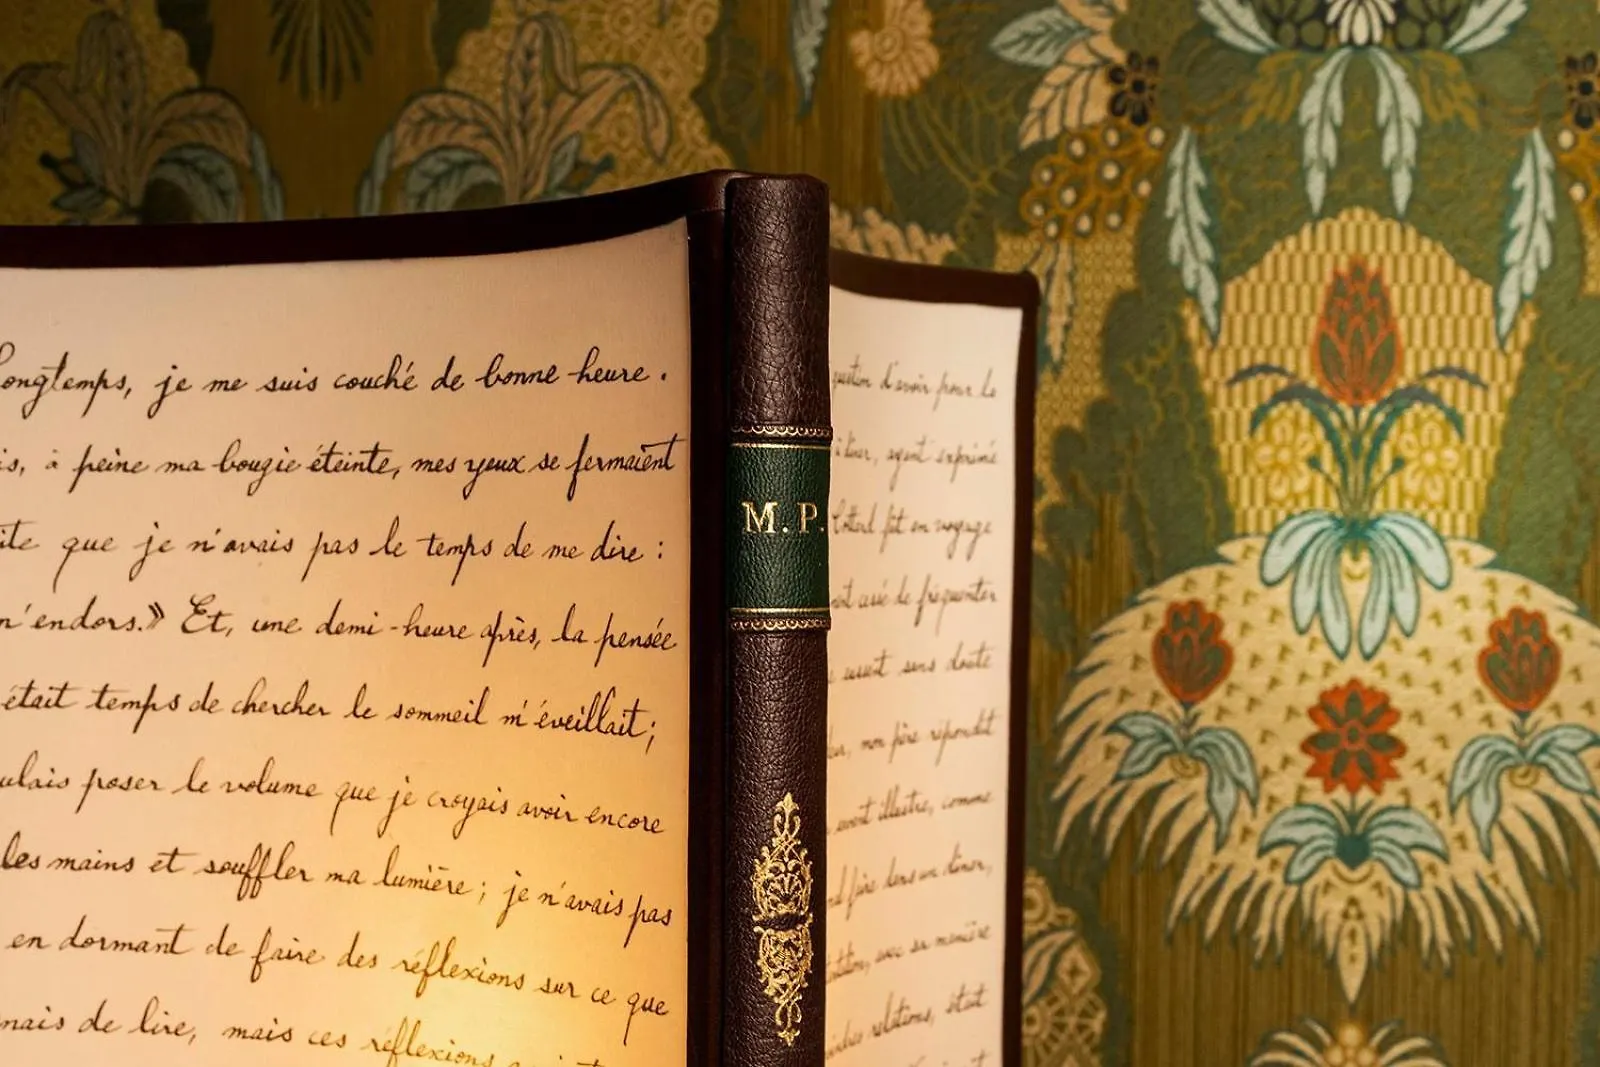 Longtemps, je me suis couché de bonne heure.
is, à peine ma bougie éteinte, mes yeux se fermaient
ite que je n'avais pas le temps de me dire :
m'endors.» Et, une demi-heure après, la pensée
était temps de chercher le sommeil m'éveillait;
ulais poser le volume que je croyais avoir encore
les mains et souffler ma lumière; je n'avais pas
en dormant de faire des réflexions sur ce que
nais de lire, mais ces réflexions
M.P.
question d'avoir pour la
à dîner, ayant exprimé
Cottard fût en voyage
cessé de fréquenter
eussent sans doute
mon père répondit
savant illustre, comme
faire dans un dîner,
avec sa manière
relations, était